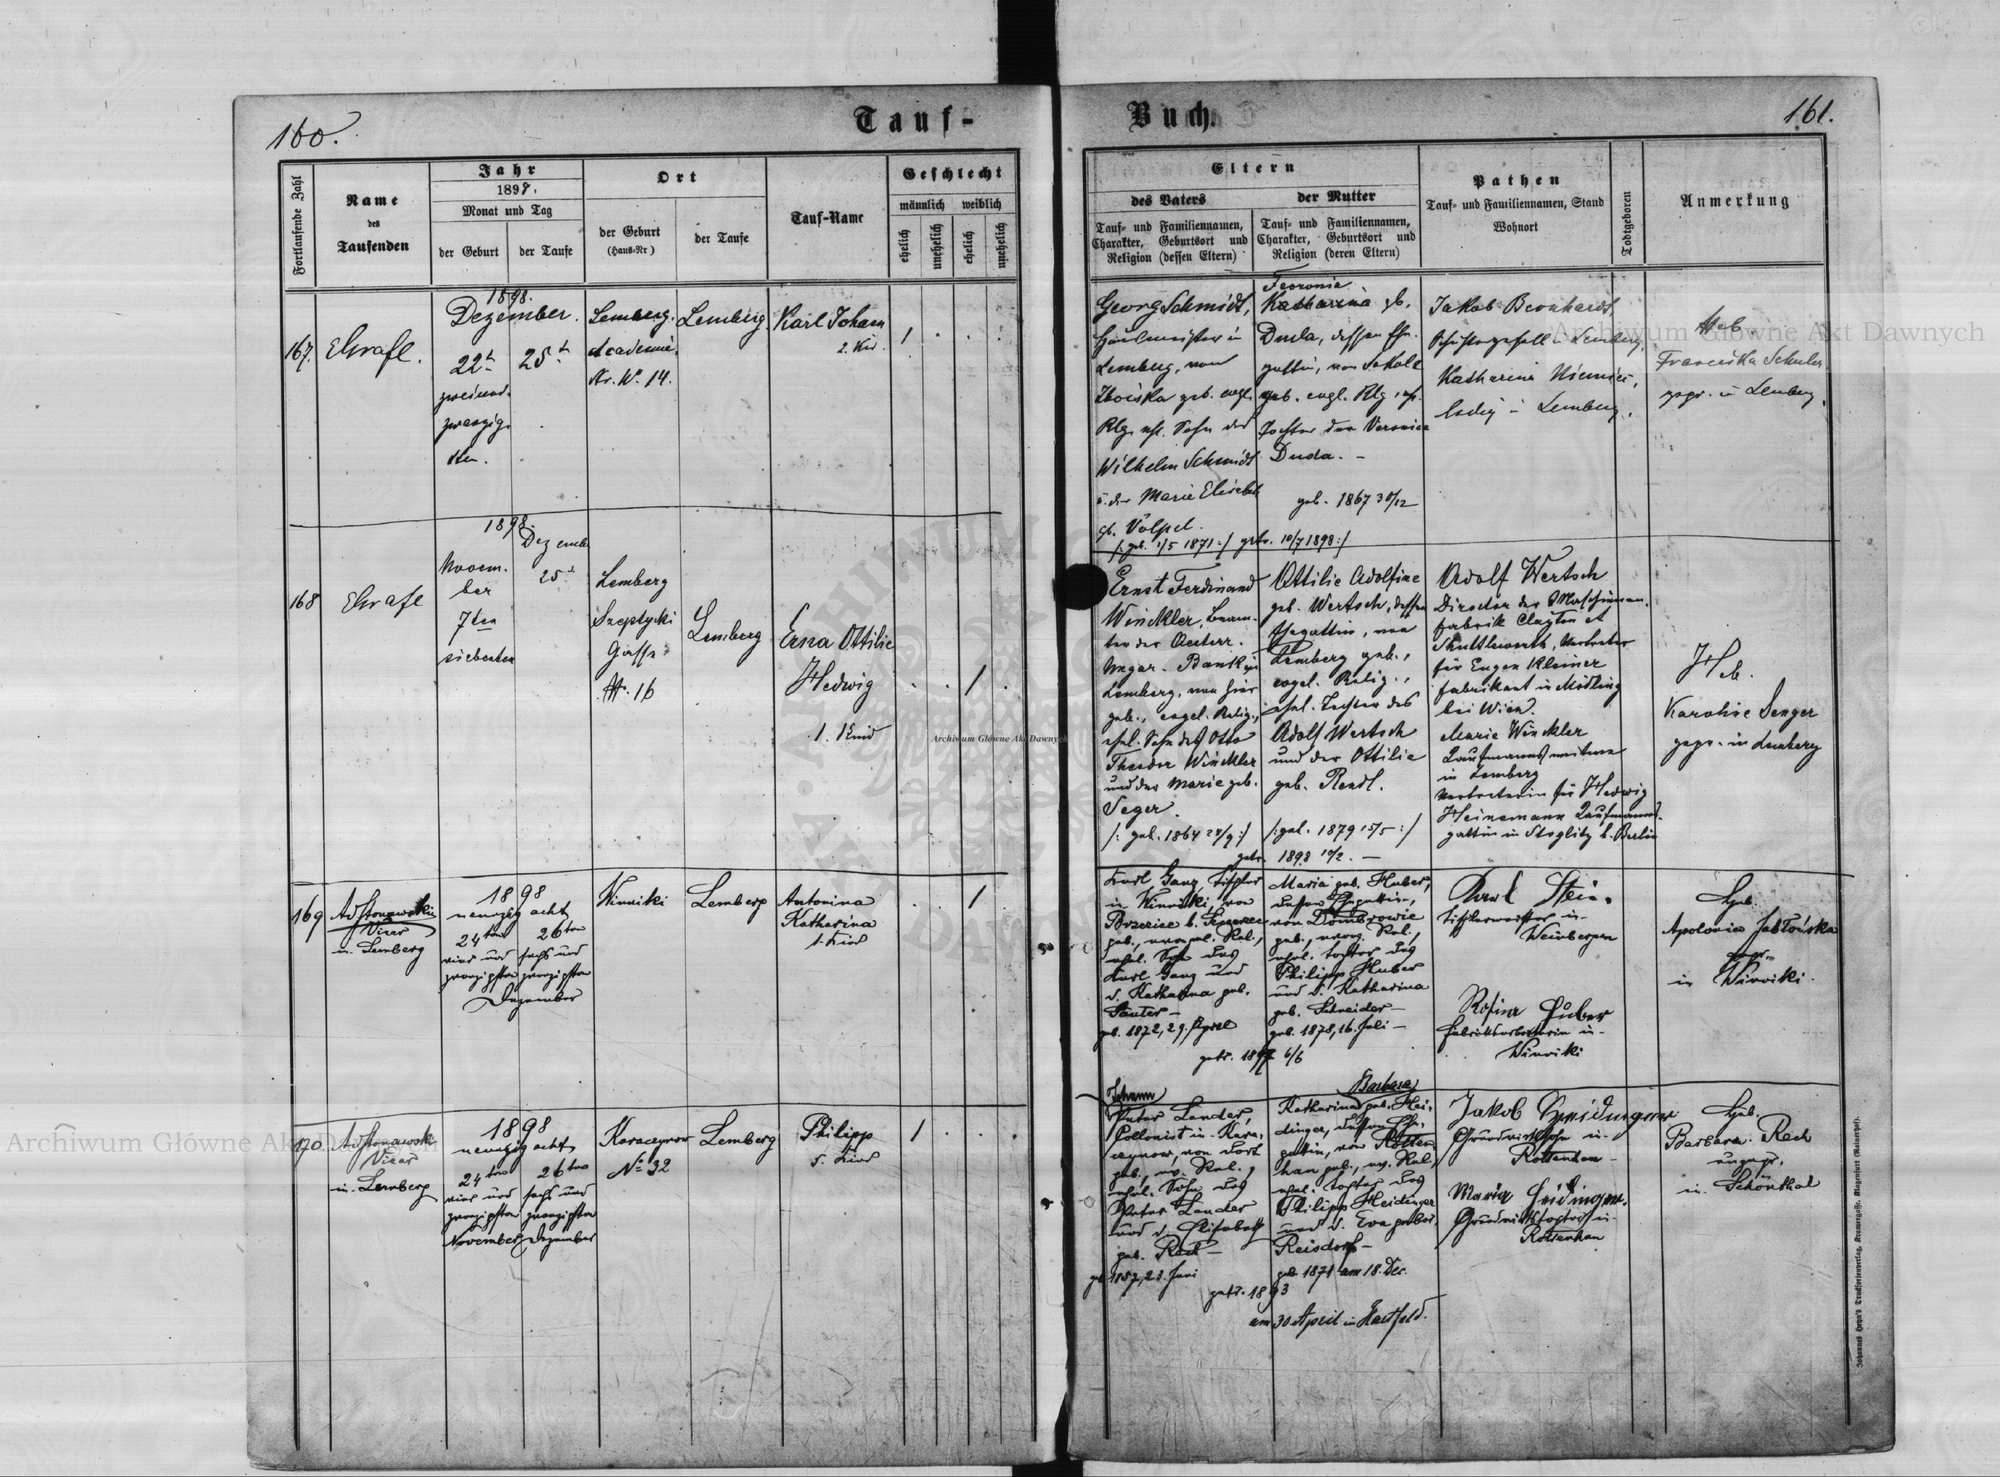 160.
Tauf-
Fortlaufende Zahl
Name
des
Taufenden
Jahr
1898.
Monat und Tag
der Geburt
der Taufe
Ort
der Geburt
(Haus-Nr)
der Taufe
Tauf-Name
Geschlecht
männlich
weiblich
ehelich
unehelich
ehelich
unehelich
167.
Grafl.
1898.
Dezember.
22t
25t
zweiund-
zwanzig-
sten.
Lemberg.
Academie.
Nr. 14.
Lemberg
Karl Johann
2. Kind.
1
168
Grafl
1898.
Novem-
ber
7ten
siebenten
Dezember
25
Lemberg
Szeptycki
Gasse
N. 16
Lemberg
Erna Ottilie
Hedwig
1. Kind
1
169
Adf Stonawski
Vicar
in Lemberg
1898
neunzig acht
24ten
26ten
vier und
sechs und
zwanzigsten
zwanzigsten
Dezember
Winniki
Lemberg
Antonina
Katharina
1. Kind
1
170.
Adf Stonawski
Vicar
in Lemberg
1898
neunzig acht
24ten
26ten
vier und
sechs und
zwanzigsten
zwanzigsten
November
Dezember
Karaczynow
No 32
Lemberg
Philipp
5. Kind
1
Buch.
161.
Eltern
des Vaters
Tauf- und Familiennamen,
Charakter, Geburtsort und
Religion (dessen Eltern)
der Mutter
Tauf- und Familiennamen,
Charakter, Geburtsort und
Religion (deren Eltern)
Pathen
Tauf- und Familiennamen, Stand
Wohnort
Todtgeboren
Anmerkung
Georg Schmidt,
in
Lemberg, von
Zboiska geb. evgl.
Rlg. ehl. Sohn des
Wilhelm Schmidt
u. der Marie Elisabet
gb. Völpel.
/: geb. 1/5 1871 :/ getr. 10/7 1898 :/
Feronia
Katharina gb.
Duda, dessen Ehe-
gattin, von Sokole
geb. evgl. Rlg. ehl.
Tochter der Veronica
Duda. –
geb. 1867 30/12
Jakob Bernhardt,
in Lemberg,
Katharina Niemiec,
ledig in Lemberg.
Heb.
Franciska Schuler
gepr. in Lemberg.
Ernst Ferdinand
Winckler, Beam-
ter der Oesterr.
Ungar. Bank in
Lemberg, von hier
geb., evgel. Relig.,
ehel. Sohn des Otto
Theodor Winckler
und der Marie geb.
Seger.
/: geb. 1864 22/9 :/
getr. 1898 10/2. –
Ottilie Adolfine
geb. Wertsch, dessen
Ehegattin, von
Lemberg geb.,
evgel. Relig.,
ehel. Tochter des
Adolf Wertsch
und der Ottilie
geb. Rendl.
/: geb. 1879 15/5 :/
Adolf Wertsch
Director der Maschinen-
fabrik Clayton et
Shuttleworth, Vertreter
für Eugen Kleiner
Fabrikant in Mödling
bei Wien.
Marie Winckler
Kaufmannswitwe
in Lemberg
Vertreterin für Hedwig
Heinemann Kaufmanns-
gattin in Steglitz b. Berlin
Heb.
Karoline Senger
gepr. in Lemberg
Karl Ganz, Tischler
in Winniki, von
geb., evangel. Rel.,
ehel. Sohn des
Karl Ganz und
d. Katharina geb.
Sauter –
geb. 1872, 29. April
getr. 1897 6/6
Maria geb. Huber,
dessen Ehegattin,
von Dombrowie
geb., evang. Rel.,
ehel. Tochter des
Philipp Huber
und d. Katharina
geb. Schneider –
geb. 1878, 16. Juli –
Karl Stein,
Tischlermeister in
Weinbergen
Rosina Huber
Fabriksarbeiterin in
Winniki
Heb.
Apolonia Jabłońska
gepr.
in Winniki.
Johann
Peter Lander,
Collonist in Kara-
czynow, von dort
geb., ev. Rel.,
ehel. Sohn des
Peter Lander
und d. Elisabeth
geb. Rech –
gb 1857, 23. Juni
getr. 1893
am 30 April in Hartfeld.
Barbara
Katharina geb. Hei-
dinger, dessen Ehe-
gattin, von Rotten-
han geb., ev. Rel.,
ehel. Tochter des
Philipp Heidinger
und d. Eva gebor.
Reisdorf –
geb. 1871 am 18. Dec.
Jakob Heidinger
Grundwirthsohn in
Rottenhan –
Maria Heidinger
Grundwirthstochter in
Rottenhan
Heb.
Barbara Rech
ungepr.
in Schönthal
Archiwum Główne Akt Dawnych
Archiwum Główne Akt Dawnych
Archiwum Główne Akt Dawnych